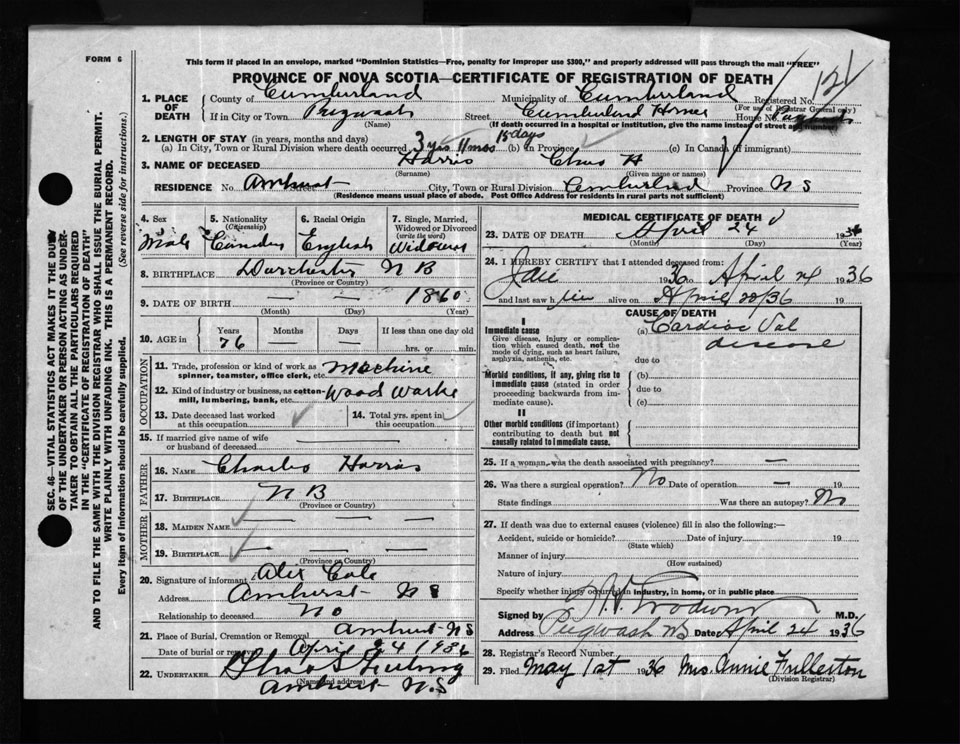 FORM 6
This form if placed in an envelope, marked "Dominion Statistics—Free, penalty for improper use $300," and properly addressed will pass through the mail "FREE"
PROVINCE OF NOVA SCOTIA—CERTIFICATE OF REGISTRATION OF DEATH
121
1. PLACE OF DEATH County of Cumberland Municipality of Cumberland Registered No.
(For use of Registrar General only)
If in City or Town Pugwash Street Cumberland Home House No.
(Name) (If death occurred in a hospital or institution, give the name instead of street and number)
2. LENGTH OF STAY (in years, months and days) 15 days
(a) In City, Town or Rural Division where death occurred 3 yrs 11 mos (b) in Province (c) In Canada (if immigrant)
3. NAME OF DECEASED Harris Chas H
(Surname) (Given name or names)
RESIDENCE No. Amherst Street City, Town or Rural Division Cumberland Province N S
(Residence means usual place of abode. Post Office Address for residents in rural parts not sufficient)
4. Sex
Male
5. Nationality (Citizenship)
6. Racial Origin
English
7. Single, Married, Widowed or Divorced (write the word)
Widower
8. BIRTHPLACE Dorchester N B
(Province or Country)
9. DATE OF BIRTH — — 1860
(Month) (Day) (Year)
10. AGE in Years Months Days If less than one day old
76 — — hrs. or min.
OCCUPATION
11. Trade, profession or kind of work as spinner, teamster, office clerk, etc. Machine
12. Kind of industry or business, as cotton-mill, lumbering, bank, etc. Wood Worke
13. Date deceased last worked at this occupation
14. Total yrs. spent in this occupation
15. If married give name of wife or husband of deceased —
FATHER
16. NAME Charles Harris
17. Birthplace N B
(Province or Country)
MOTHER
18. MAIDEN NAME — — —
19. BIRTHPLACE — — —
(Province or Country)
20. Signature of informant Alex Cole
Address Amherst N S
Relationship to deceased No
21. Place of Burial, Cremation or Removal Amherst N S
Date of burial or removal April 24 1936
22. UNDERTAKER Chas S
(Name and Address)
Amherst N.S
MEDICAL CERTIFICATE OF DEATH
23. DATE OF DEATH April 24 1936
(Month) (Day) (Year)
24. I HEREBY CERTIFY that I attended deceased from:
1936 to April 24 1936
and last saw him alive on April 22/36 19
CAUSE OF DEATH
I
Immediate cause
Give disease, injury or complication which caused death, not the mode of dying, such as heart failure, asphyxia, asthenia, etc.
(a) Cardiac Val disease
due to
Morbid conditions, if any, giving rise to immediate cause (stated in order proceeding backwards from immediate cause).
(b)
due to
(c)
II
Other morbid conditions (if important) contributing to death but not causally related to immediate cause.
25. If a woman, was the death associated with pregnancy? —
26. Was there a surgical operation? No Date of operation —
State findings Was there an autopsy? No
27. If death was due to external causes (violence) fill in also the following:—
Accident, suicide or homicide? Date of injury 19
(State which)
Manner of injury
(How sustained)
Nature of injury
Specify whether injury occurred in industry, in home, or in public place
Signed by M.D.
Address Pugwash NS Date April 24 1936
28. Registrar's Record Number
29. Filed May 1st 1936 Mrs. Annie Fullerton
(Division Registrar)
SEC. 46—VITAL STATISTICS ACT MAKES IT THE DUTY
OF THE UNDERTAKER OR PERSON ACTING AS UNDER-
TAKER TO OBTAIN ALL THE PARTICULARS REQUIRED
IN THE "CERTIFICATE OF REGISTRATION OF DEATH"
AND TO FILE THE SAME WITH THE DIVISION REGISTRAR WHO SHALL ISSUE THE BURIAL PERMIT.
WRITE PLAINLY WITH UNFADING INK. THIS IS A PERMANENT RECORD.
Every item of information should be carefully supplied. (See reverse side for instructions.)